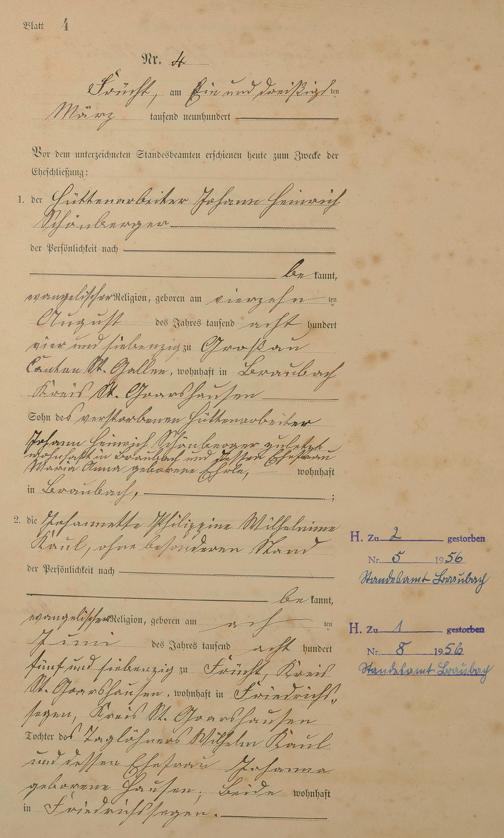 Blatt 4
Nr. 4
Frücht, am Ein und dreißigsten
März tausend neunhundert
Vor dem unterzeichneten Standesbeamten erschienen heute zum Zwecke der
Eheschließung:
1. der Hüttenarbeiter Johann Heinrich
Schönberger
der Persönlichkeit nach
be kannt,
evangelischer Religion, geboren am vierzehn ten
August des Jahres tausend acht hundert
vier und siebenzig zu Großau
Canton St. Gallen, wohnhaft in Braubach
Kreis St. Goarshausen
Sohn des verstorbenen Hüttenarbeiter
Johann Heinrich Schönberger zuletzt
wohnhaft in Braubach und dessen Ehefrau
Maria Anna geborene Ehrle, wohnhaft
in Braubach, ;
2. die Johannette Philippine Wilhelmine
Kaul, ohne besonderen Stand
der Persönlichkeit nach
be kannt,
evangelischer Religion, geboren am ach ten
Juni des Jahres tausend acht hundert
fünf und siebenzig zu Frücht, Kreis
St. Goarshausen, wohnhaft in Friedrichs-
segen, Kreis St. Goarshausen
Tochter des Taglöhners Wilhelm Kaul
und dessen Ehefrau Johanna
geborene Hausen, beide wohnhaft
in Friedrichssegen.
H. Zu 2 gestorben
Nr. 5 1956
Standesamt Braubach
H. Zu 1 gestorben
Nr. 8 1956
Standesamt Braubach